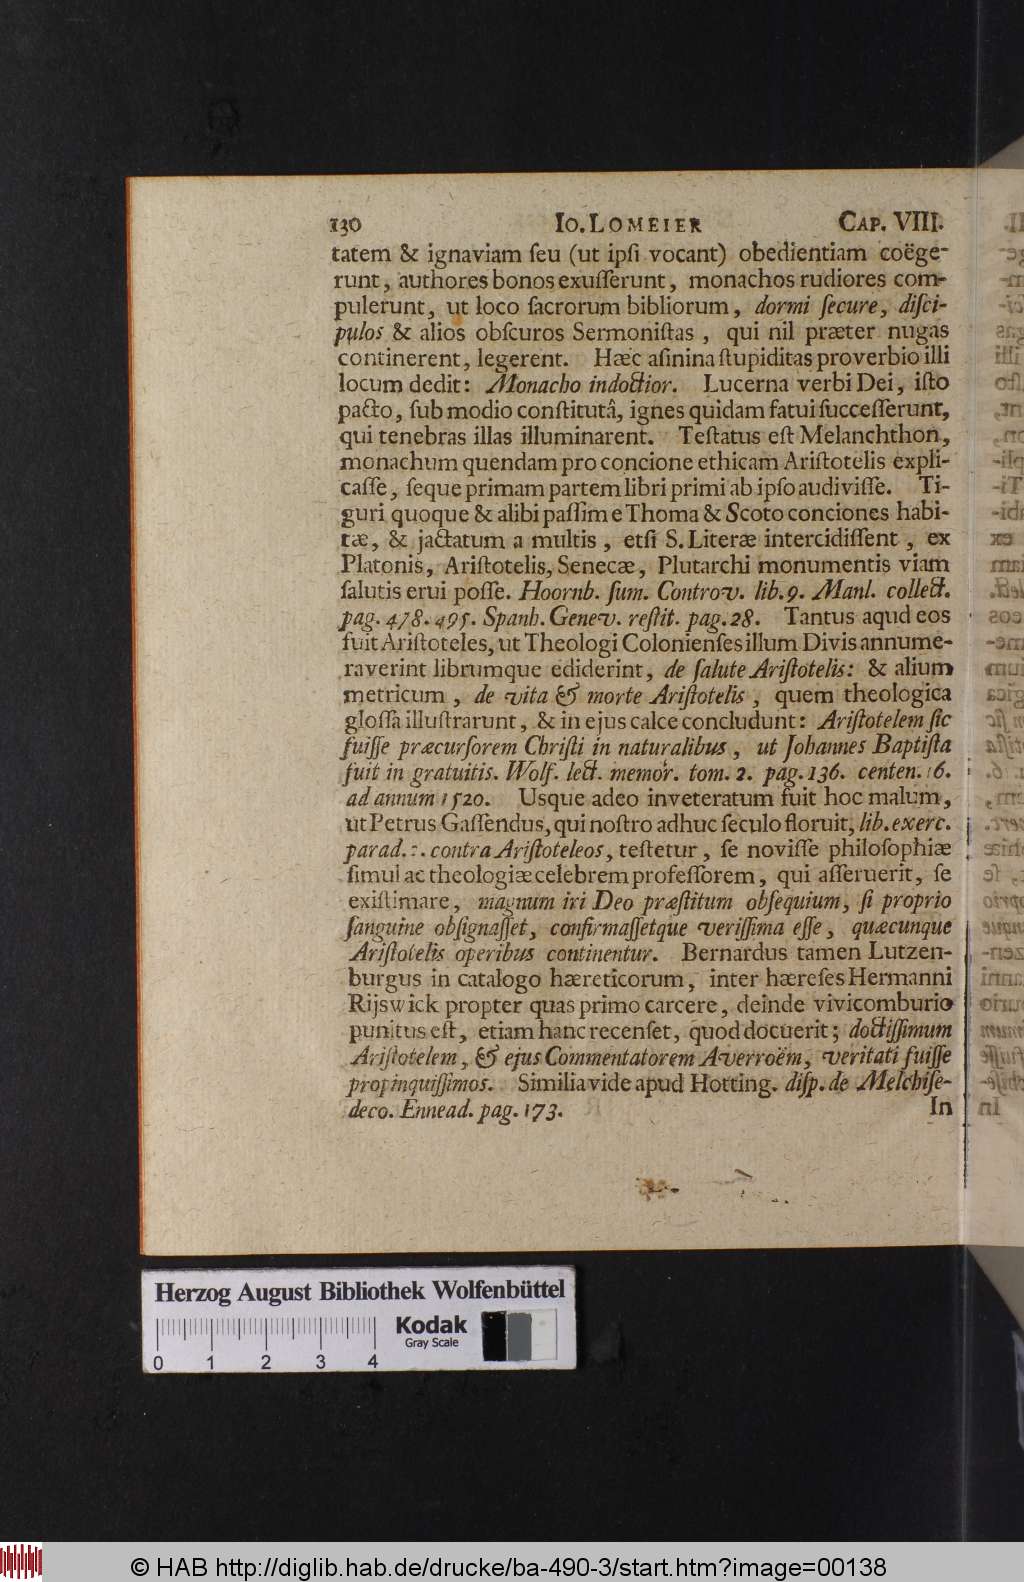 130 IO. LOMEIER CAP. VIII.
tatem & ignaviam ſeu (ut ipſi vocant) obedientiam coëge-
runt, authores bonos exuſſerunt, monachos rudiores com-
pulerunt, ut loco ſacrorum bibliorum, dormi ſecure, diſci-
pulos & alios obſcuros Sermoniſtas, qui nil præter nugas
continerent, legerent. Hæc aſinina ſtupiditas proverbio illi
locum dedit: Monacho indoctior. Lucerna verbi Dei, iſto
pacto, ſub modio conſtitutâ, ignes quidam fatui ſucceſſerunt,
qui tenebras illas illuminarent. Teſtatus eſt Melanchthon,
monachum quendam pro concione ethicam Ariſtotelis expli-
caſſe, ſeque primam partem libri primi ab ipſo audiviſſe. Ti-
guri quoque & alibi paſſim e Thoma & Scoto conciones habi-
tæ, & jactatum a multis, etſi S. Literæ intercidiſſent, ex
Platonis, Ariſtotelis, Senecæ, Plutarchi monumentis viam
ſalutis erui poſſe. Hoornb. ſum. Controv. lib. 9. Manl. collect.
pag. 478. 495. Spanh. Genev. reſtit. pag. 28. Tantus aqud eos
fuit Ariſtoteles, ut Theologi Colonienſes illum Divis annume-
raverint librumque ediderint, de ſalute Ariſtotelis: & alium
metricum, de vita & morte Ariſtotelis, quem theologica
gloſſâ illuſtrarunt, & in ejus calce concludunt: Ariſtotelem ſic
fuiſſe præcurſorem Chriſti in naturalibus, ut Johannes Baptiſta
fuit in gratuitis. Wolf. lect. memor. tom. 2. pag. 136. centen. 16.
ad annum 1520. Usque adeo inveteratum fuit hoc malum,
ut Petrus Gaſſendus, qui noſtro adhuc ſeculo floruit, lib. exerc.
parad. contra Ariſtoteleos, teſtetur, ſe noviſſe philoſophiæ
ſimul ac theologiæ celebrem profeſſorem, qui aſſeruerit, ſe
exiſtimare, magnum iri Deo præſtitum obſequium, ſi proprio
ſanguine obſignaſſet, confirmaſſetque veriſſima eſſe, quæcunque
Ariſtotelis operibus continentur. Bernardus tamen Lutzen-
burgus in catalogo hæreticorum, inter hæreſes Hermanni
Rijswick propter quas primo carcere, deinde vivicomburio
punitus eſt, etiam hanc recenſet, quod docuerit; doctiſſimum
Ariſtotelem, & ejus Commentatorem Averroëm, veritati fuiſſe
propinquiſſimos. Similia vide apud Hotting. diſp. de Melchiſe-
deco. Ennead. pag. 173. In
Herzog August Bibliothek Wolfenbüttel
Kodak
Gray Scale
0 1 2 3 4
© HAB http://diglib.hab.de/drucke/ba-490-3/start.htm?image=00138